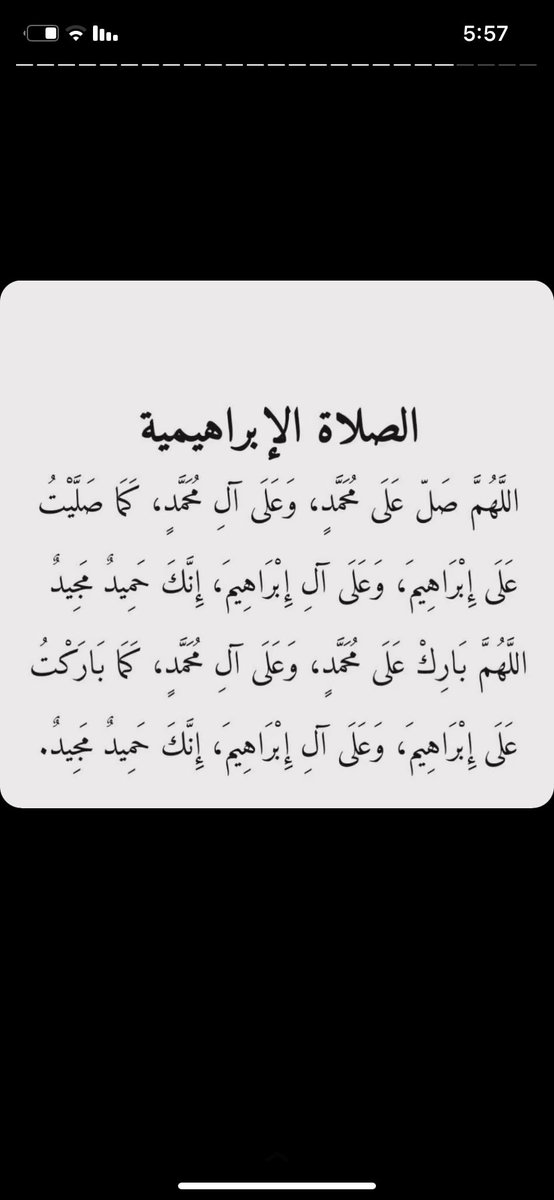 5:57
الصلاة الإبراهيمية
اللَّهُمَّ صَلّ عَلَى مُحَمَّدٍ، وَعَلَى آلِ مُحَمَّدٍ، كَمَا صَلَّيْتُ
عَلَى إِبْرَاهِيمَ، وَعَلَى آلِ إِبْرَاهِيمَ، إِنَّكَ حَمِيدٌ مَجِيدٌ
اللَّهُمَّ بَارِكْ عَلَى مُحَمَّدٍ، وَعَلَى آلِ مُحَمَّدٍ، كَمَا بَارَكْتُ
عَلَى إِبْرَاهِيمَ، وَعَلَى آلِ إِبْرَاهِيمَ، إِنَّكَ حَمِيدٌ مَجِيدٌ.